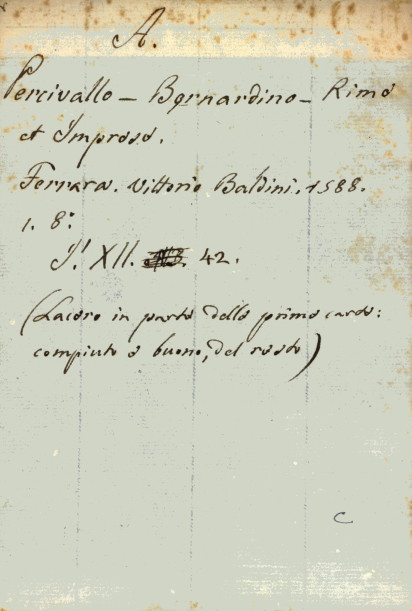 A.
Percivallo - Bernardino - Rime
et Imprese.
Ferrara. Vittorio Baldini. 1588.
1. 8.º
I! XII. 42.
(Lacero in parte delle prime carte:
compiuto e buono, del resto)
C